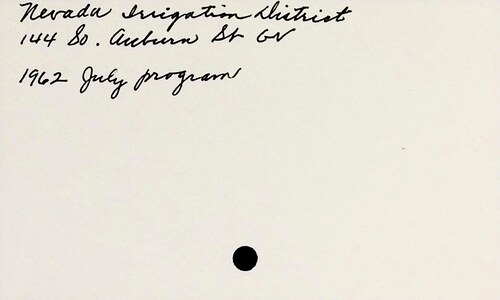 Nevada Irrigation District
144 So. Auburn St GV
1962 July program